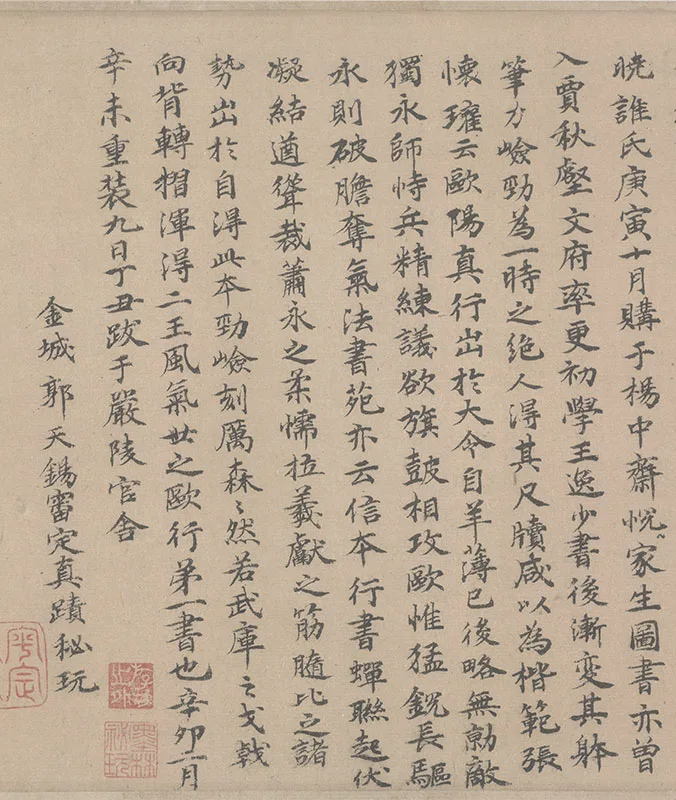 曉誰氏庚寅十月購于楊中齋悅家生圖書亦曾
入賈秋壑文府率更初學王逸少書後漸變其躰
筆力嶮勁為一時之絕人得其尺牘咸以為楷範張
懷瓘云歐陽真行出於大令自羊薄已後略無勍敵
獨永師恃兵精練議欲旗皷相攻歐惟猛銳長驅
永則破膽奪氣法書苑亦云信本行書蟬聯起伏
凝結遒聳裁蕭永之柔懦拉羲獻之筋髓比之諸
勢出於自得此本勁嶮刻厲森〻然若武庫之戈戟
向背轉摺渾得二王風氣世之歐行第一書也辛卯二月
辛未重装九日丁丑跋于嚴陵官舍
金城郭天錫審定真蹟秘玩